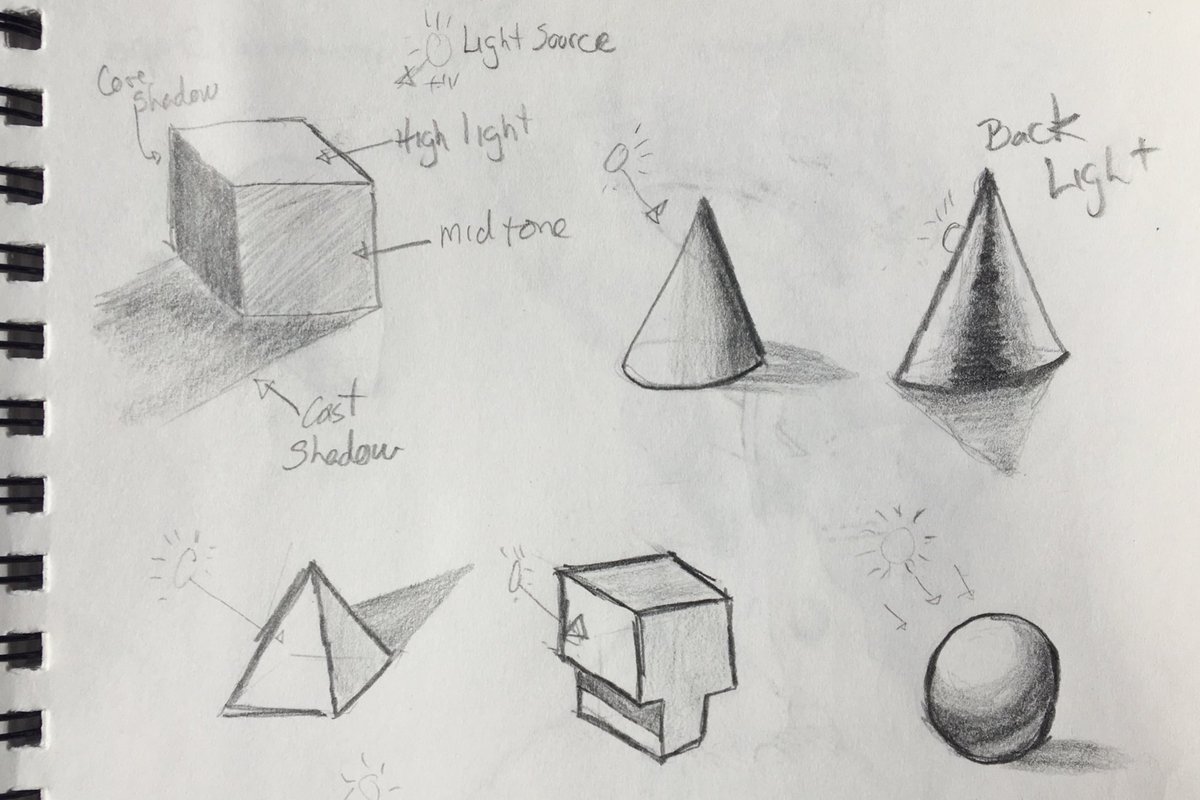 Light Source
Core
Shadow
High light
midtone
Cast
Shadow
Back
Light